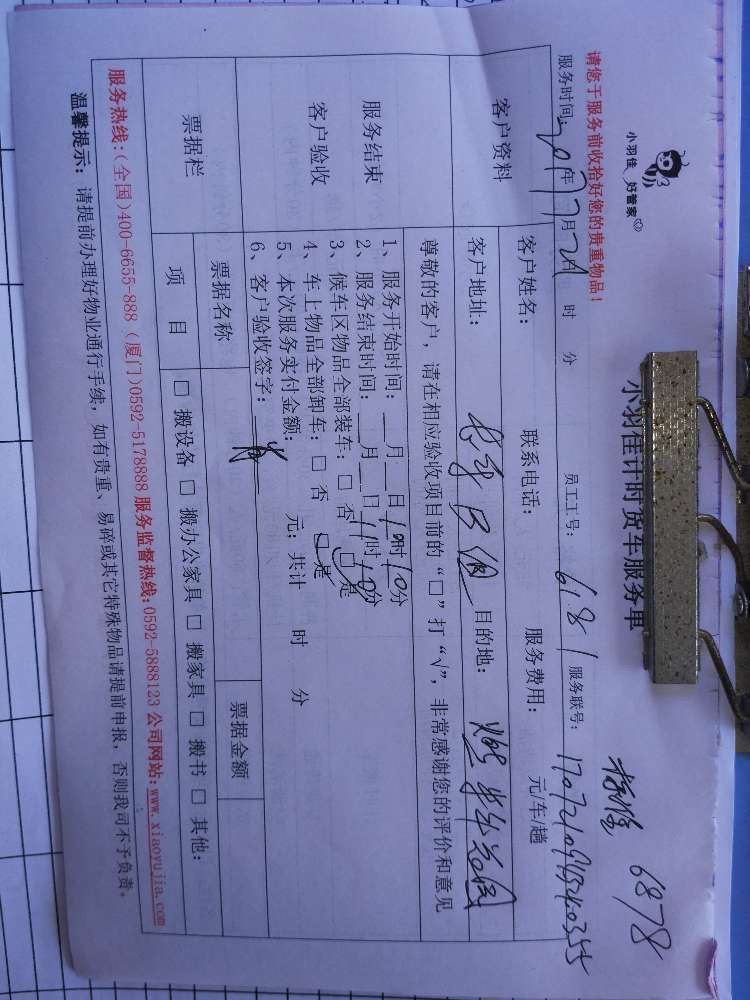 小羽佳 好管家
小羽佳计时货车服务单
6878
请您于服务前收拾好您的贵重物品!
服务时间: 2017年7月21日 时 分 员工工号: 6181 服务联号:
客户资料
客户姓名: 联系电话: 服务费用: 元/车/趟
客户地址: 目的地:
尊敬的客户,请在相应验收项目前的“□”打“√”,非常感谢您的评价和意见
服务结束
客户验收
1、服务开始时间:__月__日10时10分
2、服务结束时间:__月__日11时10分
3、候车区物品全部装车:□ 否 □ 是
4、车上物品全部卸车:□ 否 □ 是
5、本次服务实付金额: 元;共计 时 分
6、客户验收签字:
票据栏
票据名称 票据金额
项 目 □ 搬设备 □ 搬办公家具 □ 搬家具 □ 搬书 □ 其他:
服务热线:(全国)400-6655-888(厦门)0592-5178888 服务监督热线:0592-5888123 公司网站:www.xiaoyujia.com
温馨提示:请提前办理好物业通行手续,如有贵重、易碎或其它特殊物品请提前申报,否则我司不予负责。